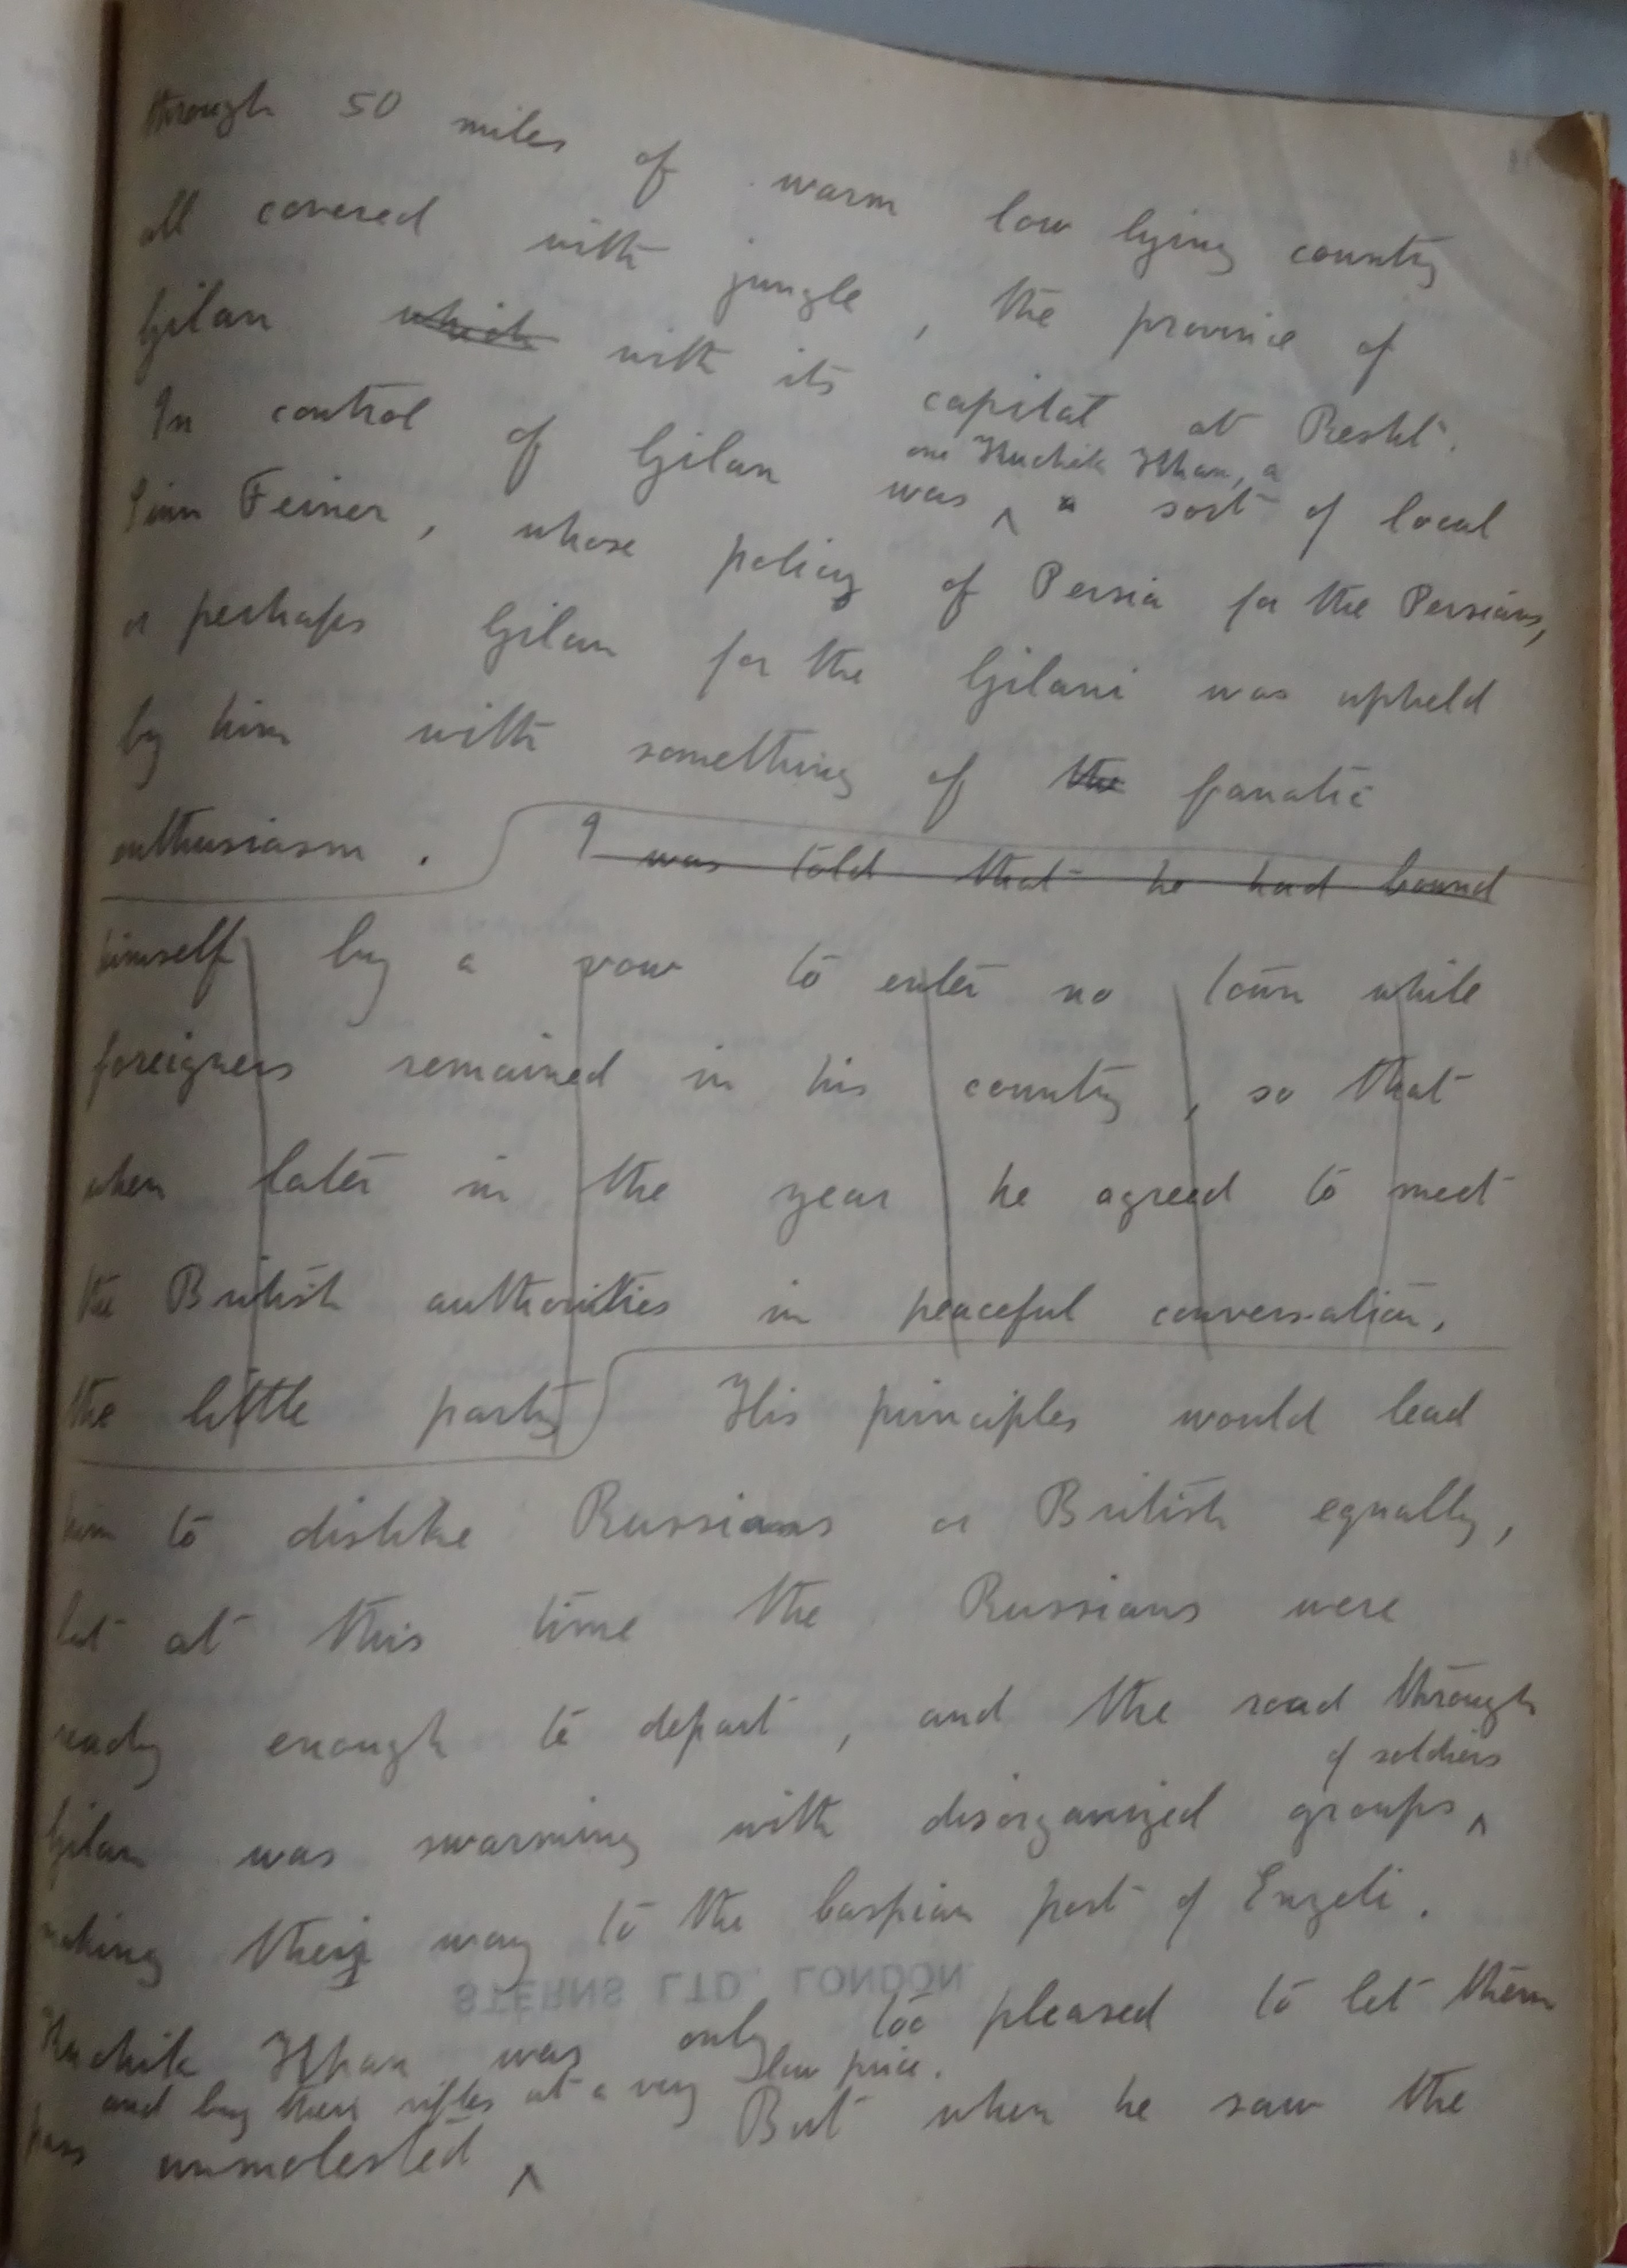 through 50 miles of warm low lying country
all covered with jungle, the province of
Gilan which with its capital at Resht.
one Kuchik Khan, a
In control of Gilan was ^ a sort of local
Sinn Feiner, whose policy of Persia for the Persians,
or perhaps Gilan for the Gilani was upheld
by him with something of the fanatic
enthusiasm. I was told that he had bound
himself by a vow to enter no town while
foreigners remained in his country, so that
when later in the year he agreed to meet
the British authorities in peaceful conversation,
the little party His principles would lead
him to dislike Russians or British equally,
but at this time the Russians were
ready enough to depart, and the road through
of soldiers
Gilan was swarming with disorganized groups ^
making their way to the Caspian port of Enzeli.
STERNS LTD. LONDON
Kuchik Khan was only too pleased to let them
and buy their rifles at a very low price.
pass unmolested ^ But when he saw the